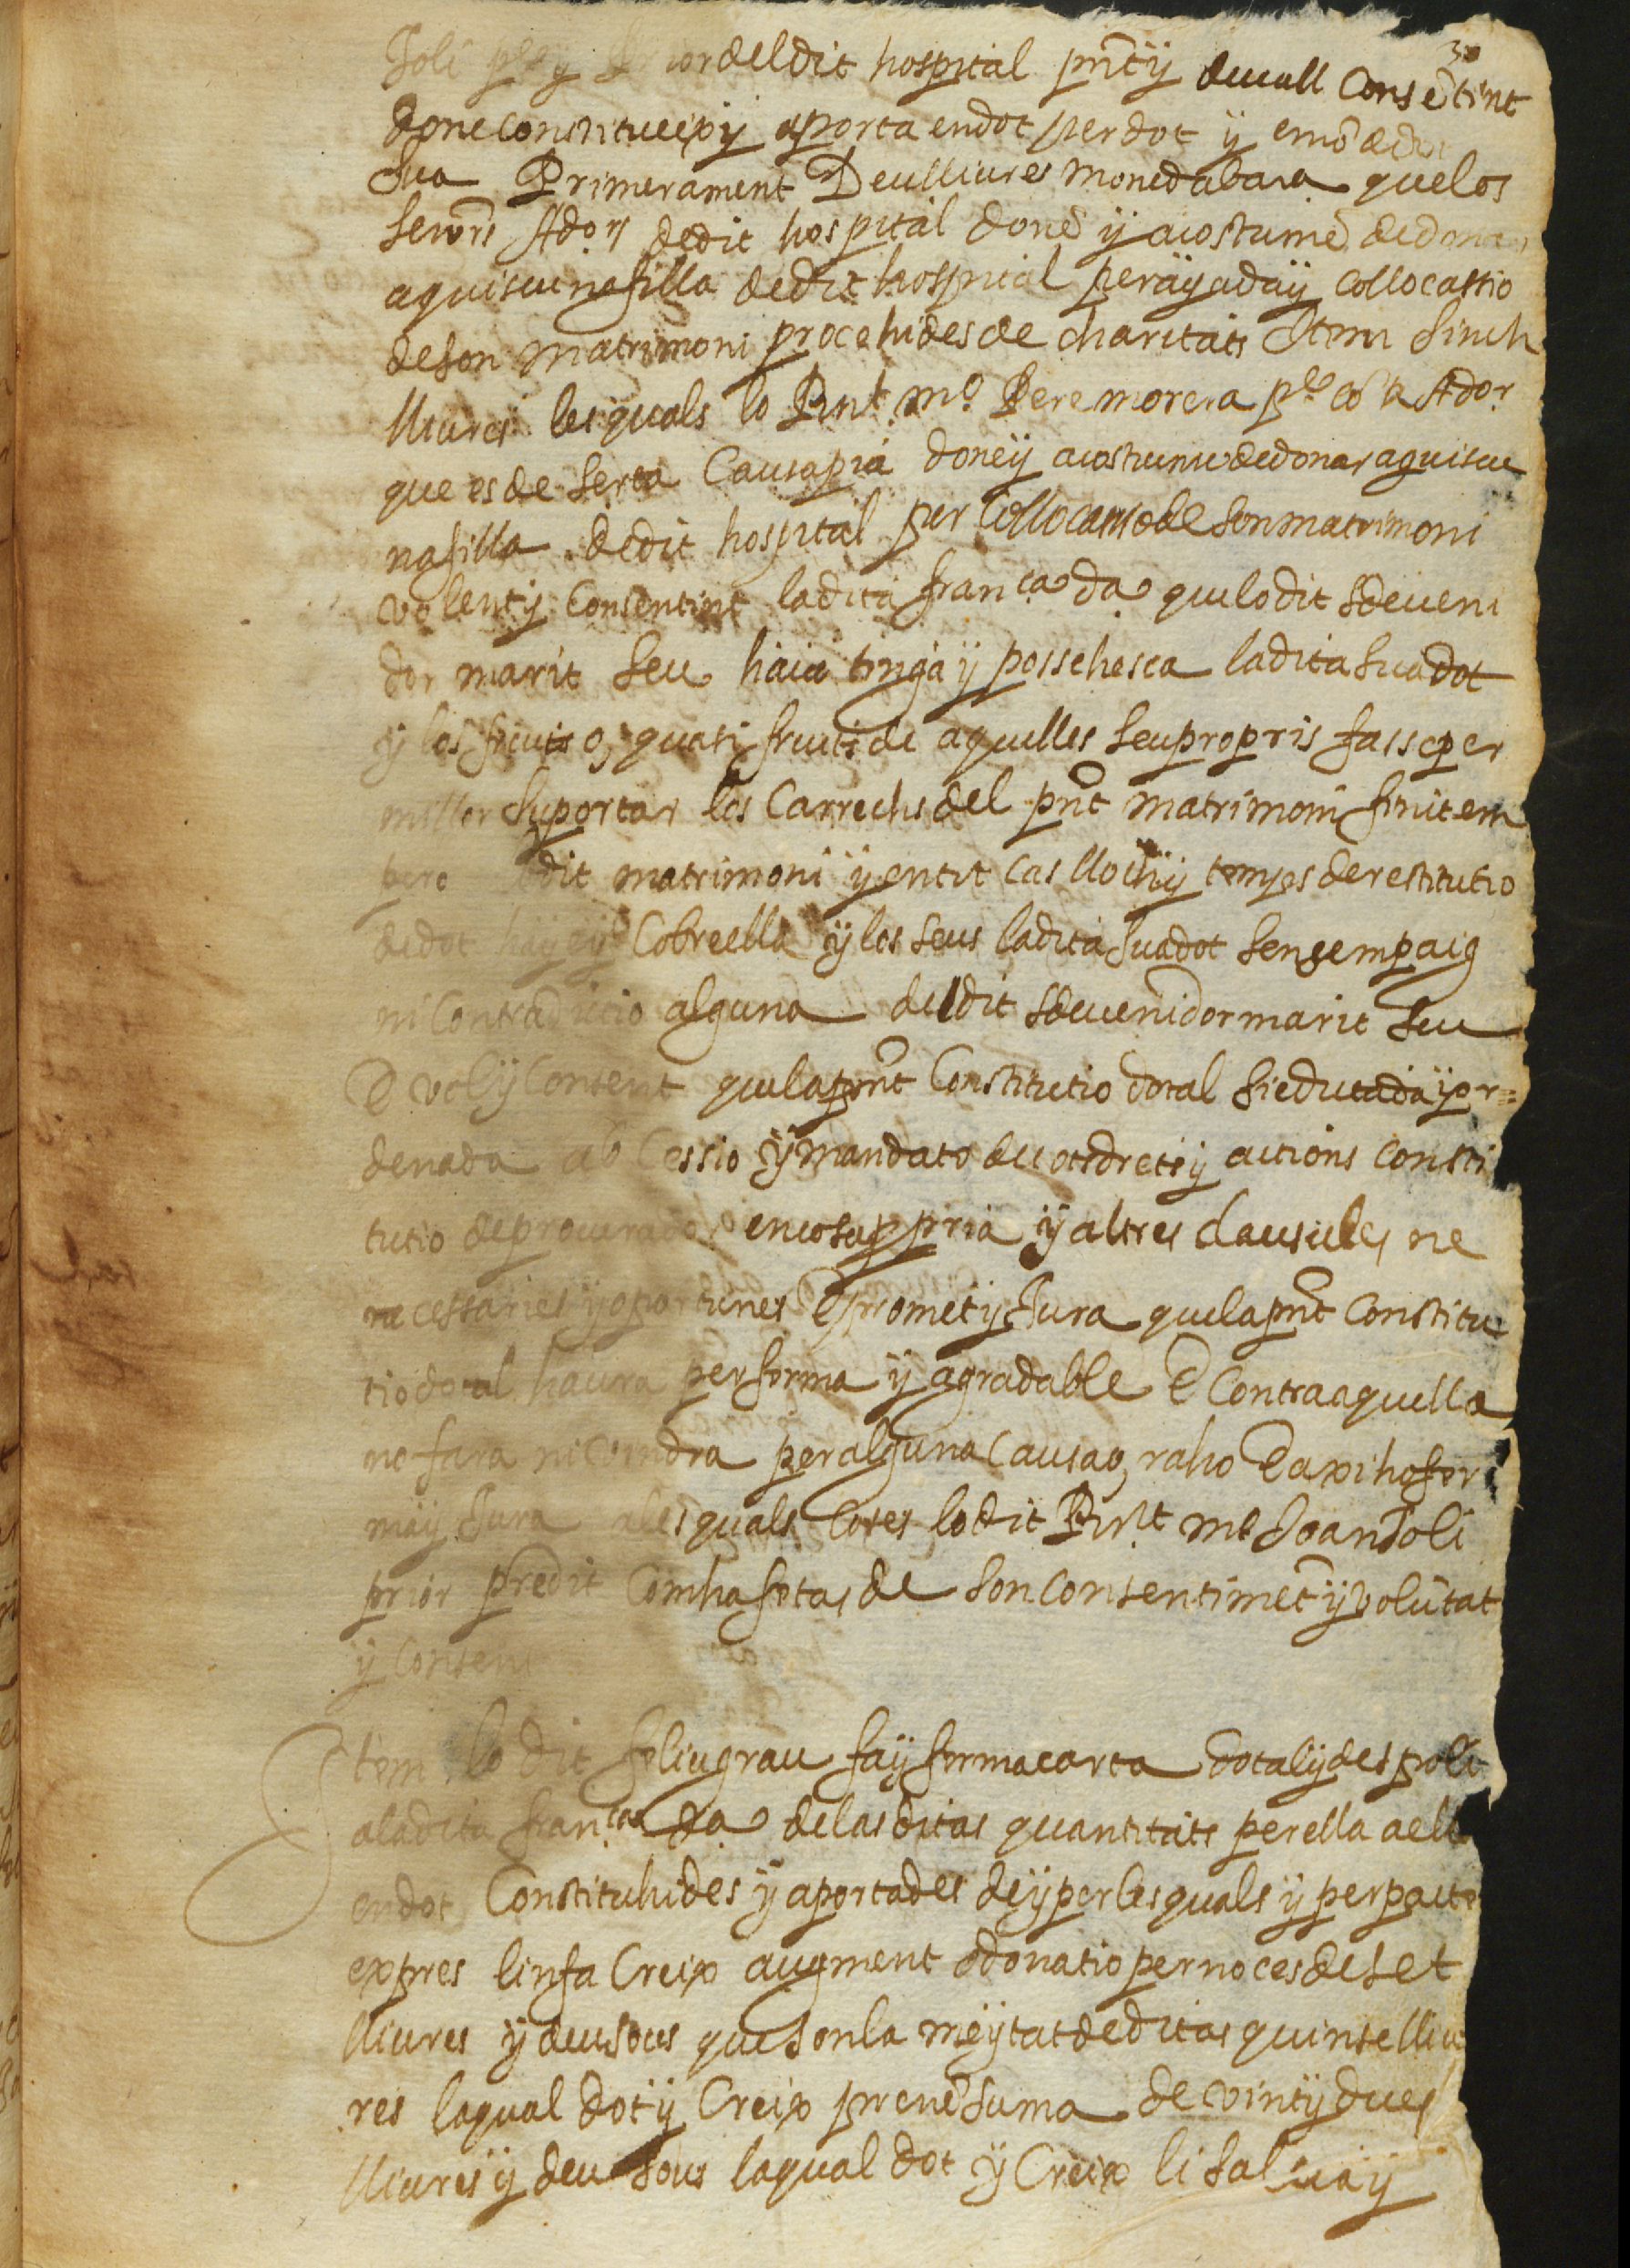 30
Joli prior deldit hospital pnt y devall Consētint
done constitueix y aporta en dot per dot y en nō de dot
sua Primerament Deu lliures moneda bara que los
senors Ador dedit hospital donē y acostumē de donar
a quiscuna filla dedit hospital per ayuda y collocassio
de son matrimoni procehides de charitats Item sinch
lliures les quals lo Rnt mo Pere morera pre Ador
que es de serta Causa pia done y acostume de donar a quiscu
na filla dedit hospital per collocassio de son matrimoni
volent y Consentint la dita franca da que lo dit sdeveni
dor marit seu haia tinga y possehesca la dita sua dot
y los fruits o, quasi fruits de aquelles seu propris fasse per
millor suportar los Carrechs del pnt matrimoni finit em
pero dit matrimoni y en tot cas lloch y temps de restitutio
de dot Cobre ella y los seus la dita sua dot sense empaig
ni Contradictio alguna deldit sdevenidor marit seu
E vol y Consent que la pnt Constitutio dotal sie dictada y or=
denada ab Cessio y mandato de tots drets y actions consti
tutio de procurador en cosa ppria y altres clausules ne
necessaries y oportunes E promet y Jura que la pnt Constitu
tio dotal haura per ferma y agradable E Contra aquella
no fara ni vindra per alguna Causa o, raho E axi ho fer
ma y Jura a les quals Coses lo dit Rnt me Joan Joli
prior predit Com ha fetas de son Consentimēt y volūtat
y Consent
Item lo dit feliu grau fa y ferma carta dotal y de spoli
a la dita franca da de las ditas quantitats per ella a ell
en dot Constituhides y aportades de y per les quals y per pacte
expres li nfa Creix augment o donatio per noces de set
lliures y deu sous que son la meytat de ditas quinse lliu
res la qual dot y Creix prenē suma de vint y dues
lliures y deu sous la qual dot y Creix li salva y